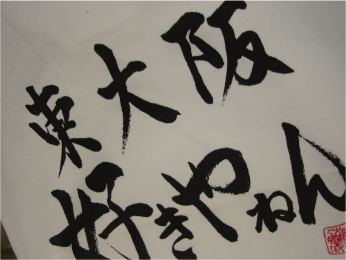 東大阪
好きやねん